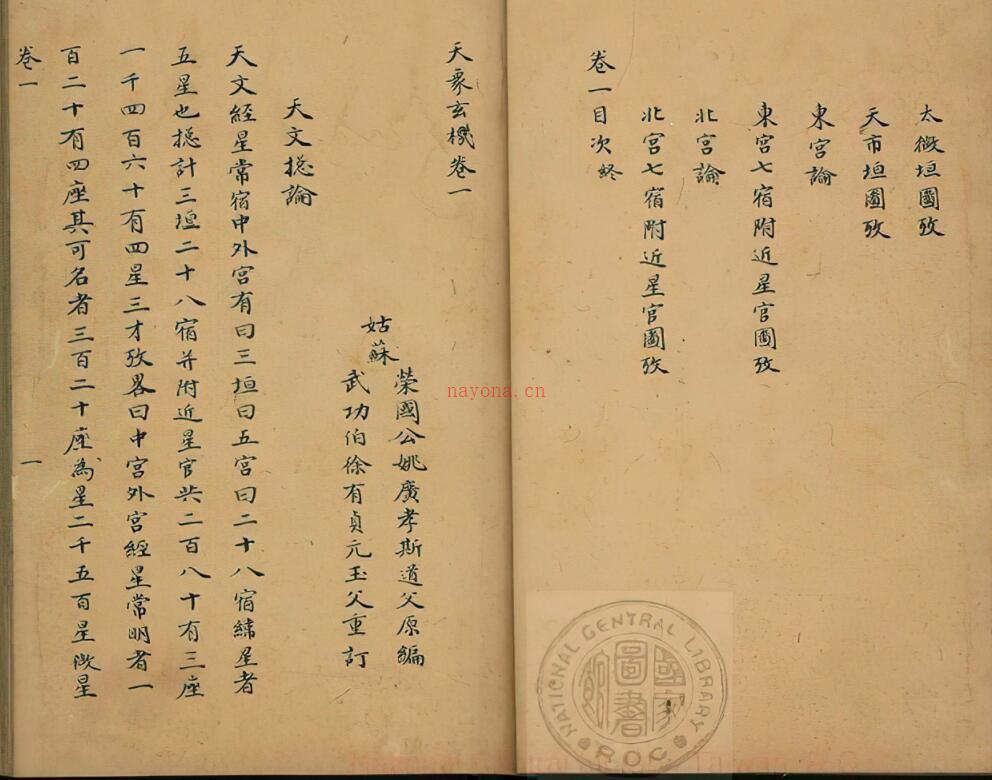 太微垣圖攷
天市垣圖攷
東宮論
東宮七宿附近星官圖攷
北宮論
北宮七宿附近星官圖攷
卷一目次終
天象玄機卷一
姑蘇
榮國公姚廣孝斯道父原編
武功伯徐有貞元玉父重訂
天文摠論
天文經星常宿中外宮有曰三垣曰五宮曰二十八宿緯星者
五星也摠計三垣二十八宿并附近星官共二百八十有三座
一千四百六十有四星三才攷畧曰中宮外宮經星常明者一
百二十有四座其可名者三百二十座為星二千五百星微星
卷一
一
nayona.cn
NATIONAL CENTRAL LIBRARY
ROC
國家圖書館